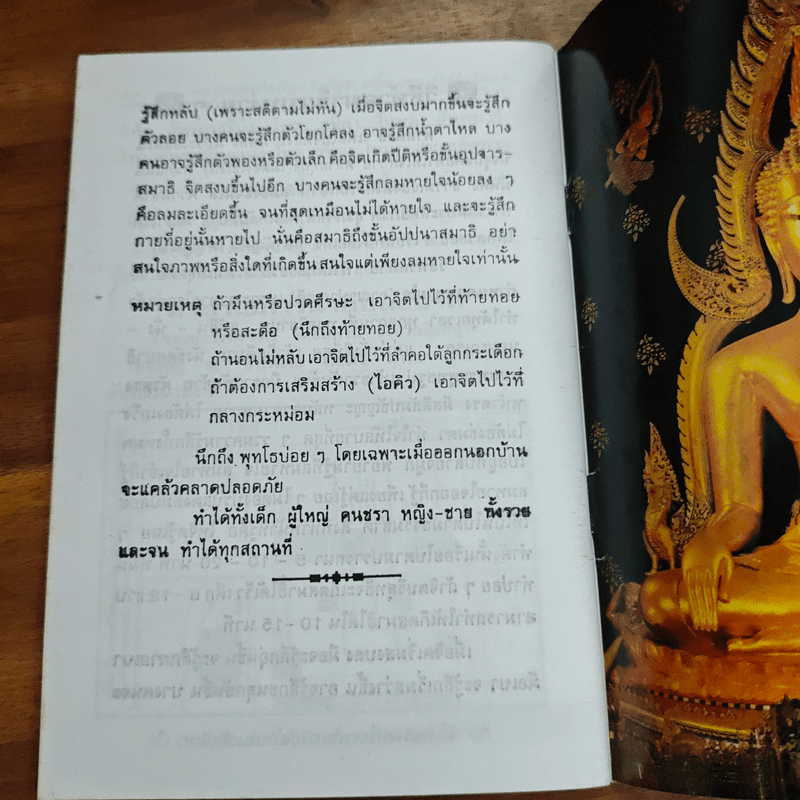 รู้สึกหลับ (เพราะสติตามไม่ทัน) เมื่อจิตสงบมากขึ้นจะรู้สึก
ตัวลอย บางคนจะรู้สึกตัวโยกโคลง อาจรู้สึกน้ำตาไหล บาง
คนอาจรู้สึกตัวพองหรือตัวเล็ก คือจิตเกิดปีติหรือขั้นอุปจาร-
สมาธิ จิตสงบขึ้นไปอีก บางคนจะรู้สึกลมหายใจน้อยลง ๆ
คือลมละเอียดขึ้น จนที่สุดเหมือนไม่ได้หายใจ และจะรู้สึก
กายที่อยู่นั้นหายไป นั่นคือสมาธิถึงขั้นอัปปนาสมาธิ อย่า
สนใจภาพหรือสิ่งใดที่เกิดขึ้น สนใจแต่เพียงลมหายใจเท่านั้น
หมายเหตุ ถ้ามึนหรือปวดศีรษะ เอาจิตไปไว้ที่ท้ายทอย
หรือสะดือ (นึกถึงท้ายทอย)
ถ้านอนไม่หลับ เอาจิตไปไว้ที่ลำคอใต้ลูกกระเดือก
ถ้าต้องการเสริมสร้าง (ไอคิว) เอาจิตไปไว้ที่
กลางกระหม่อม
นึกถึง พุทโธบ่อย ๆ โดยเฉพาะเมื่อออกนอกบ้าน
จะแคล้วคลาดปลอดภัย
ทำได้ทั้งเด็ก ผู้ใหญ่ คนชรา หญิง-ชาย ทั้งรวย
และจน ทำได้ทุกสถานที่